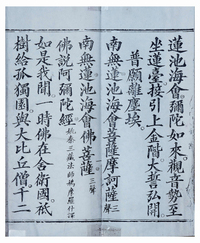 蓮池海會彌陀如來。觀音勢至
坐蓮臺接引上金階。大誓弘開
普願離塵埃
南無蓮池海會菩薩摩訶薩三聲
南無蓮池海會佛菩薩三聲
佛說阿彌陀經姚秦三藏法師鳩摩羅什譯
如是我聞一時佛在舍衛國。祇
樹給孤獨園。與大比丘僧。千二